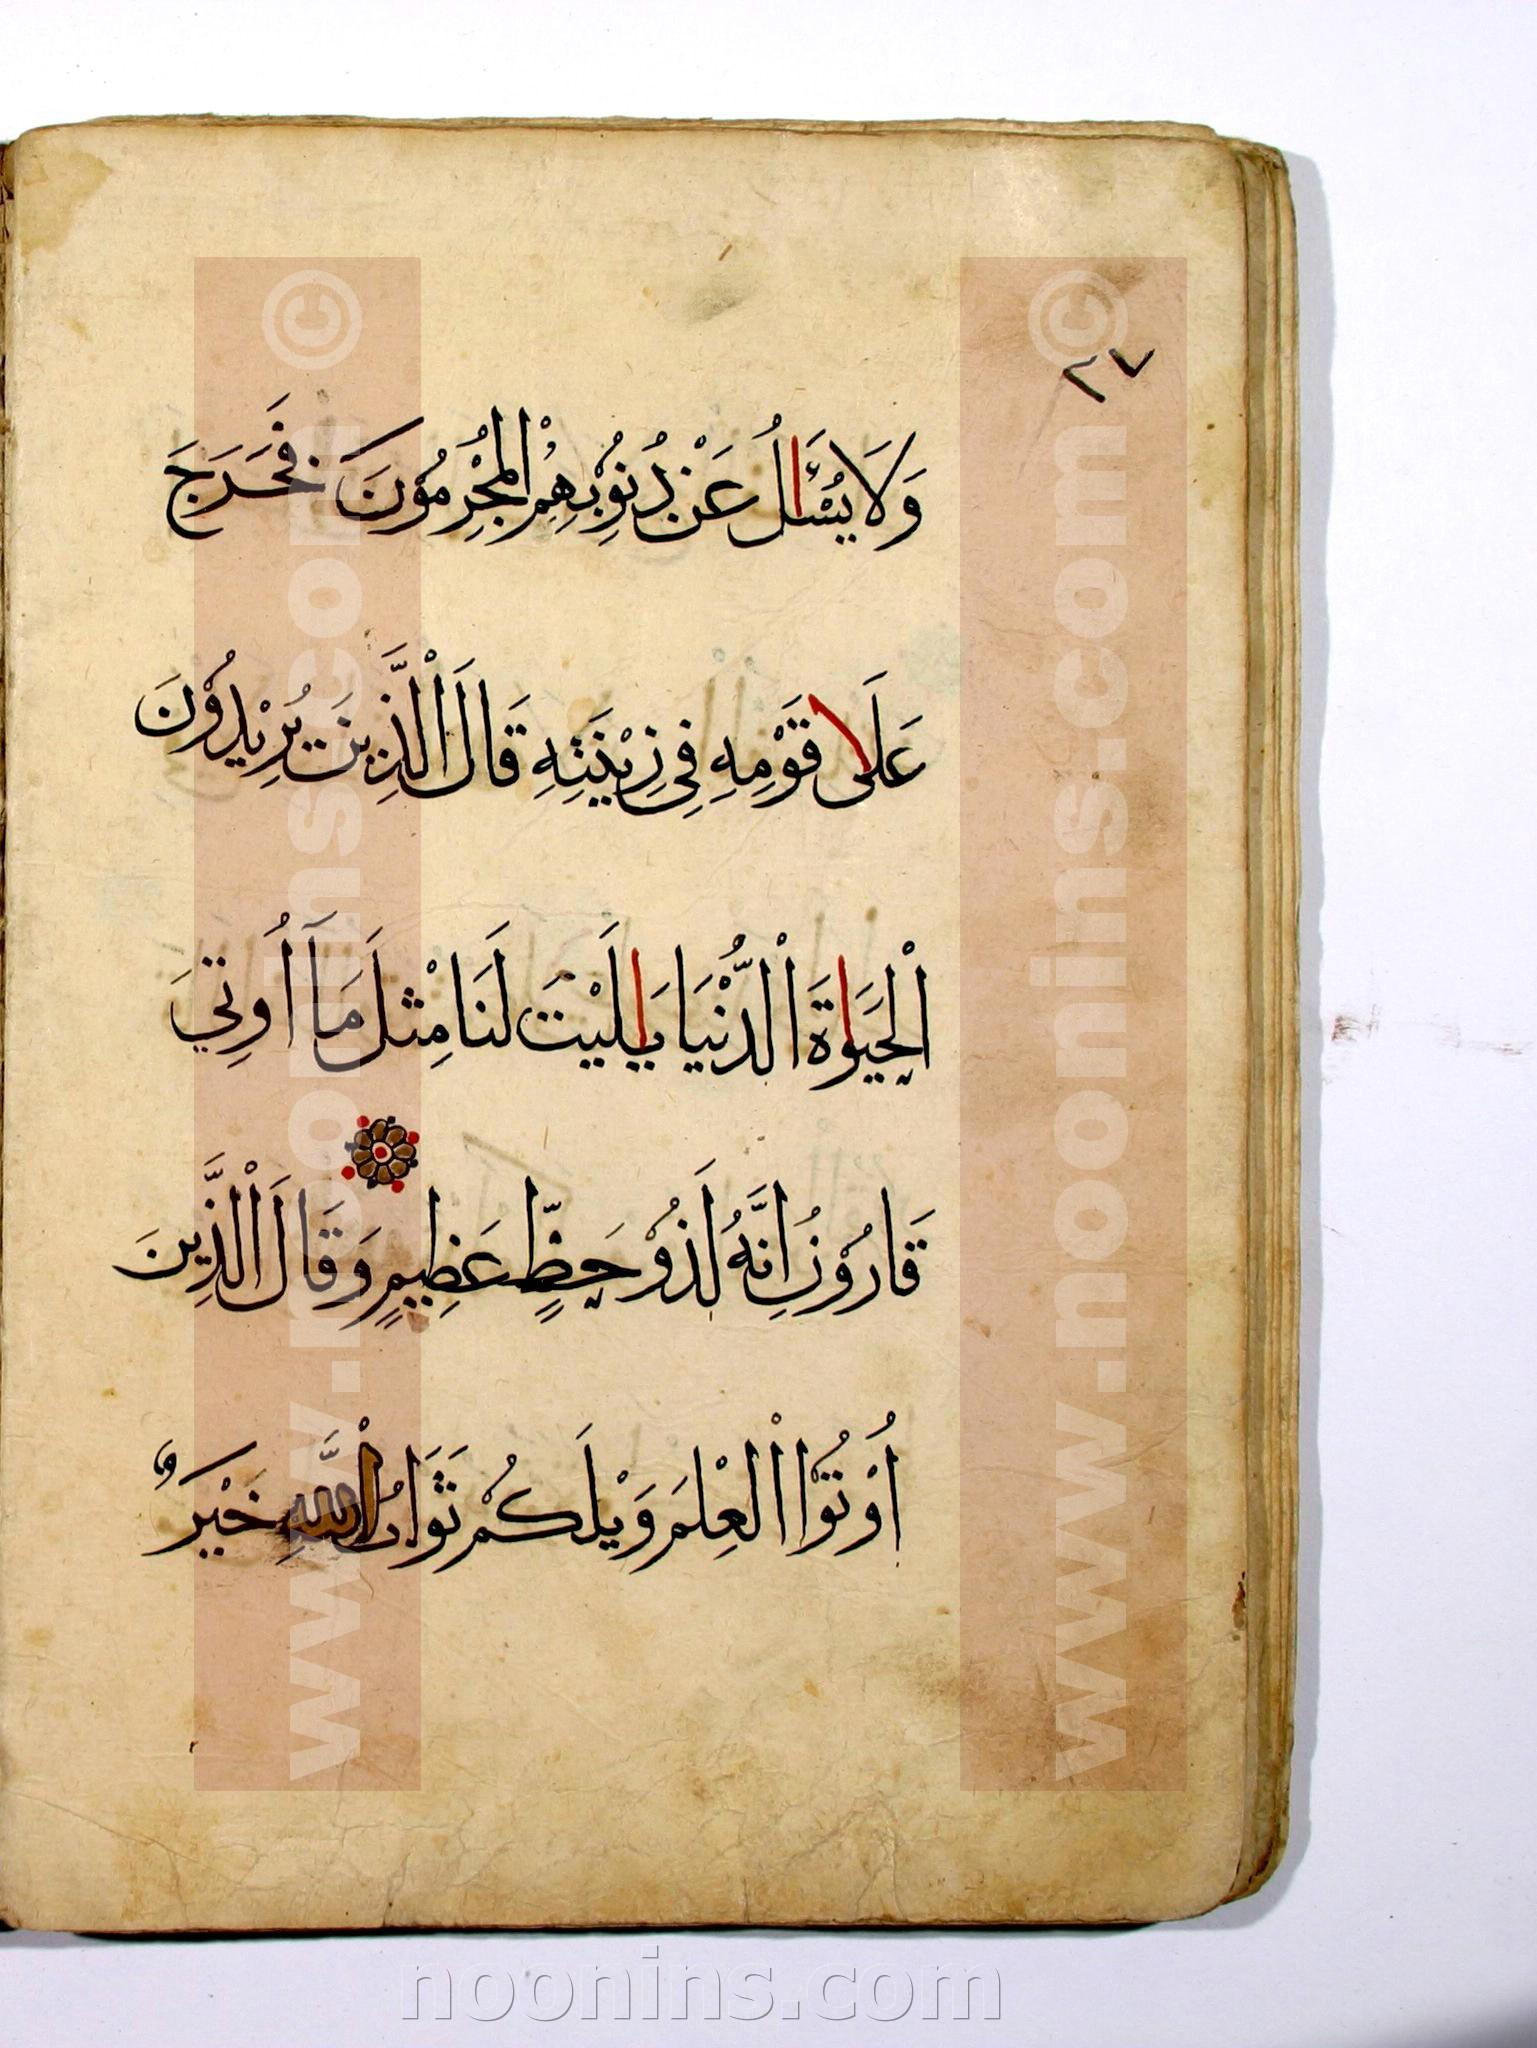 ٢٧
وَلَا يُسْـَٔالُ عَنْ ذُنُوْبِهِمْ الْمُجْرِمُوْنَ فَخَرَجَ
عَلَى قَوْمِهِ فِي زِيْنَتِهِ قَالَ الَّذِينَ يُرِيْدُوْنَ
الْحَيَواةَ الْدُّنْيَا يَالَيْتَ لَنَا مِثْلَ مَآ أُوتِيَ
قَارُوْنُ اِنَّهُ لَذُوْ حَظٍّ عَظِيمٍ وَقَالَ الَّذِينَ
اُوْتُوْا الْعِلْمَ وَيْلَكُمْ ثَوَابُ اللَّهِ خَيْرٌ
www.noonins.com ©
www.noonins.com ©
noonins.com